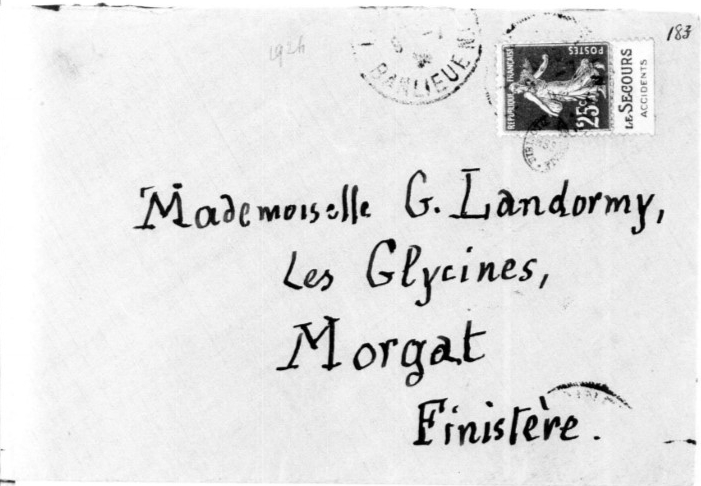 1924
183
BANLIEUE N
REPUBLIQUE FRANÇAISE
POSTES
25c
LE SECOURS
ACCIDENTS
Mademoiselle G. Landormy,
Les Glycines,
Morgat
Finistère.